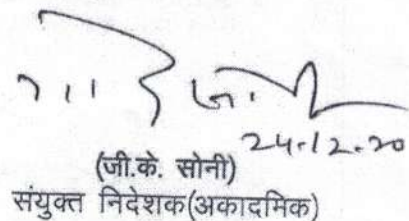 24.12.20
(जी.के. सोनी)
संयुक्त निदेशक(अकादमिक)